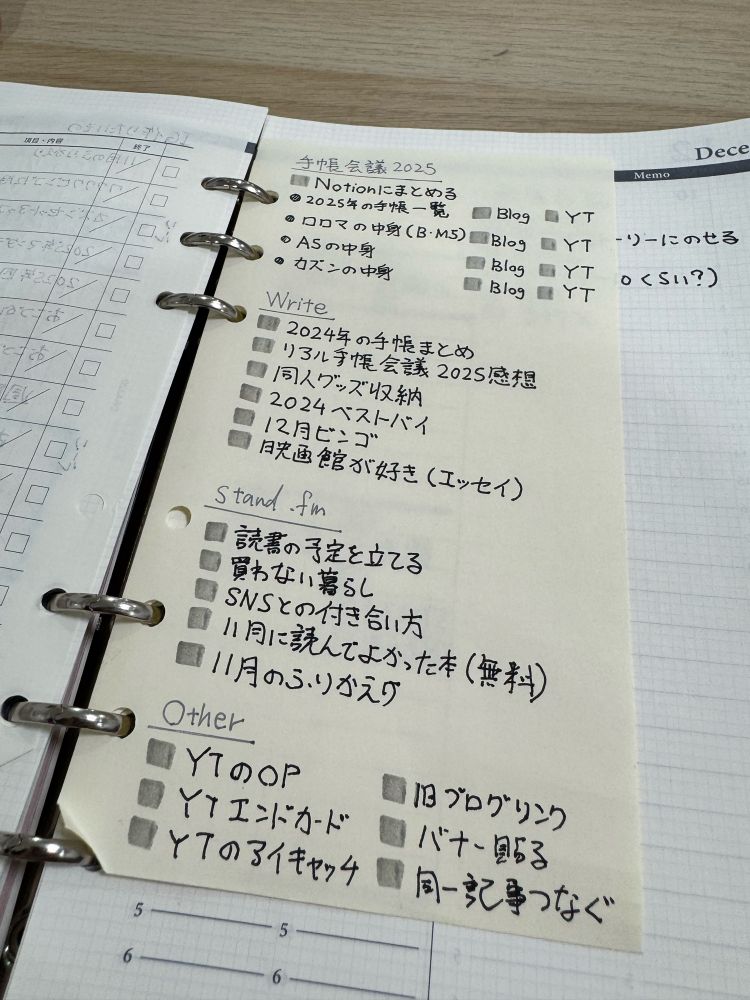 項目・内容
終了
Dece
Memo
ーリーにのせる
手帳会議2025
Notionにまとめる
2025年の手帳一覧 Blog YT
ロロマの中身(B・M5) Blog YT
A5の中身 Blog YT
カズンの中身 Blog YT
Write
2024年の手帳まとめ
リアル手帳会議2025感想
同人グッズ収納
2024ベストバイ
12月ビンゴ
映画館が好き(エッセイ)
stand.fm
読書の予定を立てる
買わない暮らし
SNSとの付き合い方
11月に読んでよかった本(無料)
11月のふりかえり
Other
YTのOP
YTエンドカード
YTのアイキャッチ
旧ブログリンク
バナー貼る
同一記事つなぐ
5 5
6 6